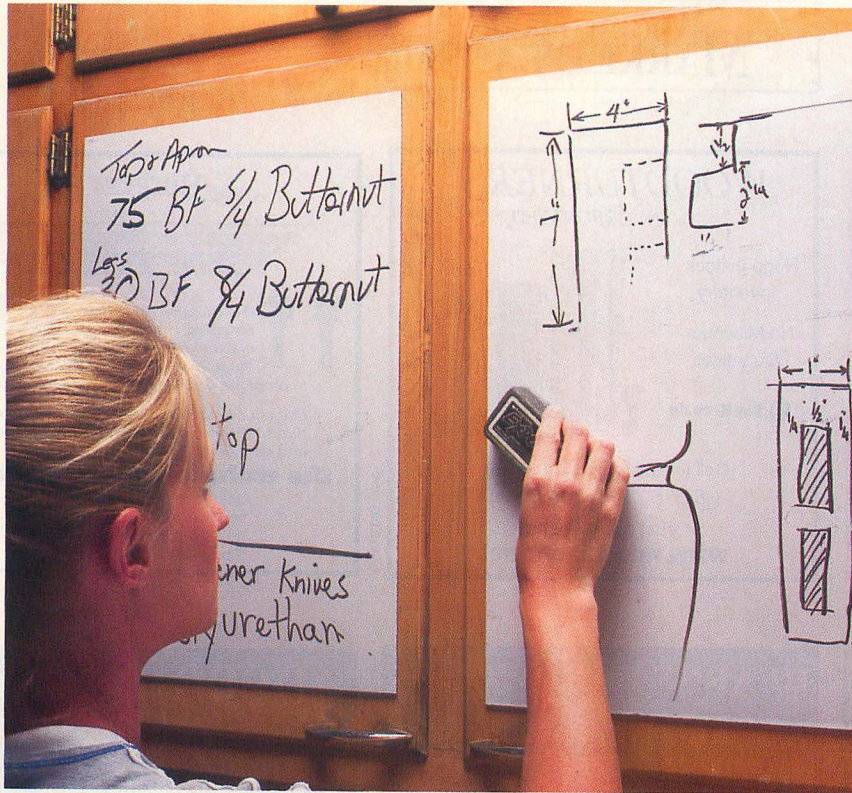 Top & Apron
75 BF 5/4 Butternut
Legs
20 BF 8/4 Butternut
top
ener Knives
yurethan
4"
7"
2 1/4
1"
1"
1/4 1/2" 1/4